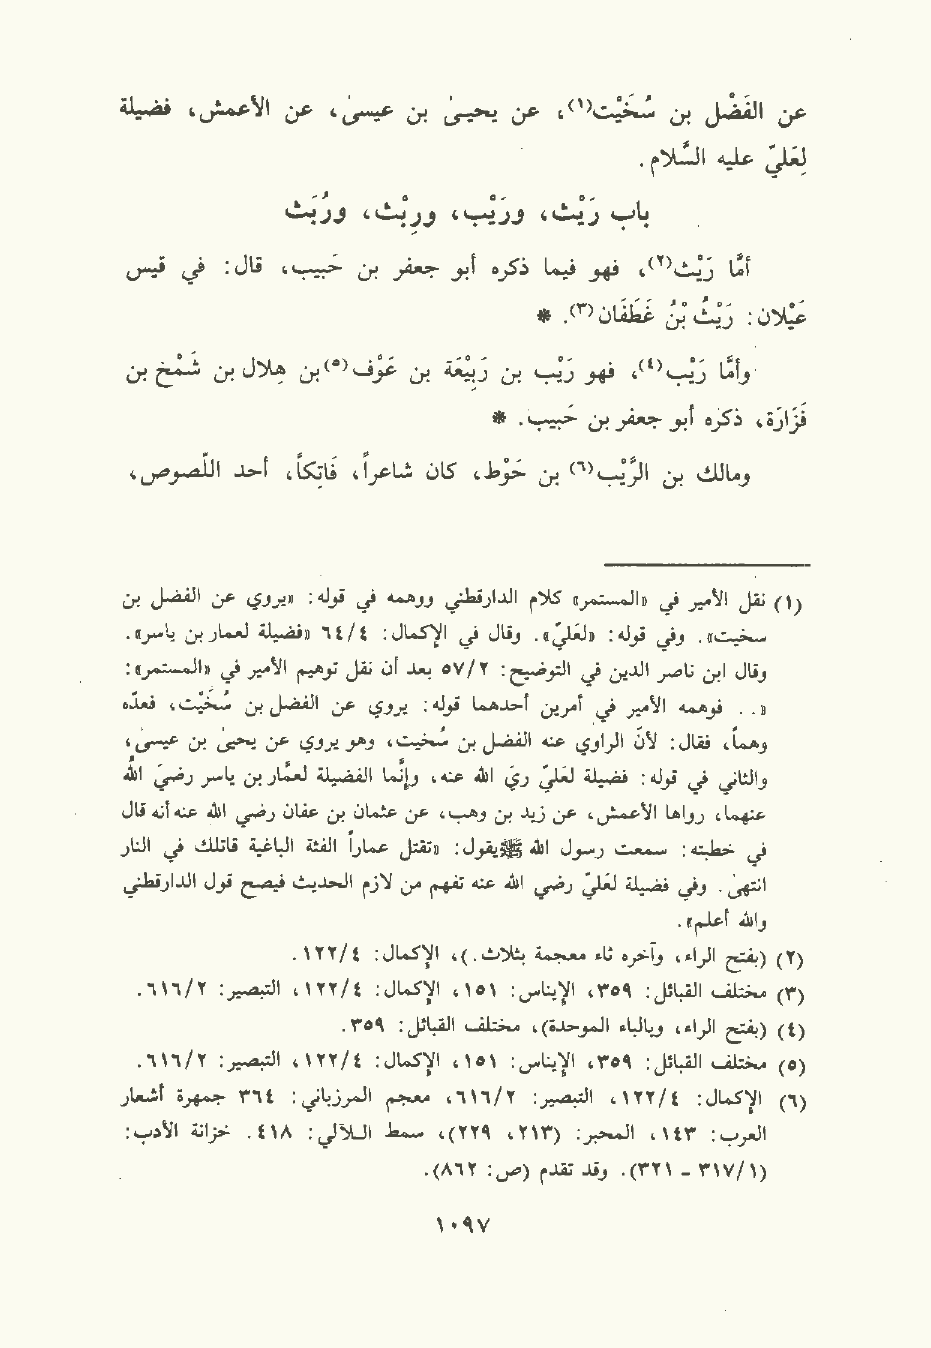 عن الفَضْل بن سُخَيْت(١)، عن يحيىٰ بن عيسىٰ، عن الأعمش، فضيلة
لِعَليّ عليه السَّلام.
باب رَيْث، ورَيْب، ورِبْث، ورُبَث
أمَّا رَيْث(٢)، فهو فيما ذكره أبو جعفر بن حَبيب، قال: في قيس
عَيْلان: رَيْثُ بْنُ غَطَفَان(٣). *
وأمَّا رَيْب(٤)، فهو رَيْب بن رَبِيْعَة بن عَوْف(٥) بن هِلال بن شَمْخ بن
فَزَارَة، ذكره أبو جعفر بن حَبيب. *
ومالك بن الرَّيْب(٦) بن حَوْط، كان شاعراً، فَاتِكاً، أحد اللَّصوص،
(١) نقل الأمير في «المستمر» كلام الدارقطني ووهمه في قوله: «يروي عن الفضل بن
سخيت». وفي قوله: «لعَليّ». وقال في الإكمال: ٦٤/٤ «فضيلة لعمار بن ياسر».
وقال ابن ناصر الدين في التوضيح: ٥٧/٢ بعد أن نقل توهيم الأمير في «المستمر»:
«.. فوهمه الأمير في أمرين أحدهما قوله: يروي عن الفضل بن سُخَيْت، فعدّه
وهماً، فقال: لأنّ الراوي عنه الفضل بن سُخيت، وهو يروي عن يحيىٰ بن عيسىٰ،
والثاني في قوله: فضيلة لعَليّ رَيَ الله عنه، وإنَّما الفضيلة لعمَّار بن ياسر رضيَ اللهُ
عنهما، ورواها الأعمش، عن زيد بن وهب، عن عثمان بن عفان رضي الله عنه أنه قال
في خطبته: سمعت رسول الله ﷺ يقول: «تقتل عماراً الفئة الباغية قاتلك في النار
انتهىٰ. وفي فضيلة لعَليّ رضي الله عنه تفهم من لازم الحديث فيصح قول الدارقطني
والله أعلم».
(٢) (بفتح الراء، وآخره ثاء معجمة بثلاث.)، الإكمال: ١٢٢/٤.
(٣) مختلف القبائل: ٣٥٩، الإيناس: ١٥١، الإكمال: ١٢٢/٤، التبصير: ٦١٦/٢.
(٤) (بفتح الراء، وبالباء الموحدة)، مختلف القبائل: ٣٥٩.
(٥) مختلف القبائل: ٣٥٩، الإيناس: ١٥١، الإكمال: ١٢٢/٤، التبصير: ٦١٦/٢.
(٦) الإكمال: ١٢٢/٤، التبصير: ٦١٦/٢، معجم المرزباني: ٣٦٤ جمهرة أشعار
العرب: ١٤٣، المحبر: (٢١٣، ٢٢٩)، سمط اللآلي: ٤١٨. خزانة الأدب:
(٣١٧/١ - ٣٢١). وقد تقدم (ص: ٨٦٢).
١٠٩٧